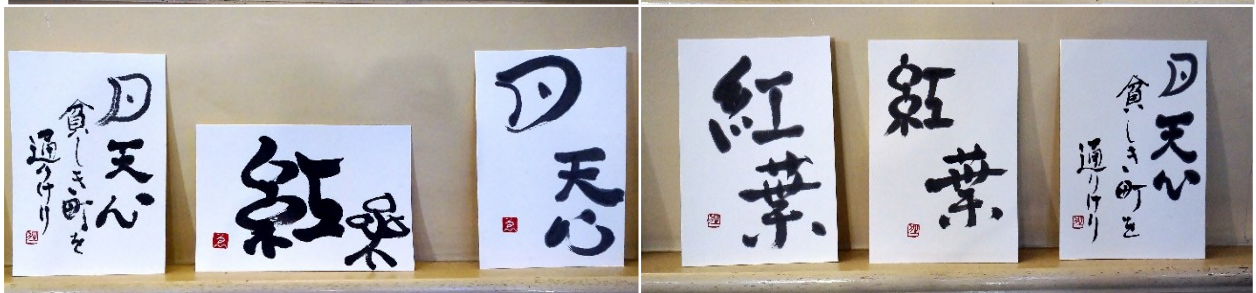 月天心
貧しき町を
通りけり
紅葉
月
天心
紅
葉
紅
葉
月天心
貧しき町を
通りけり